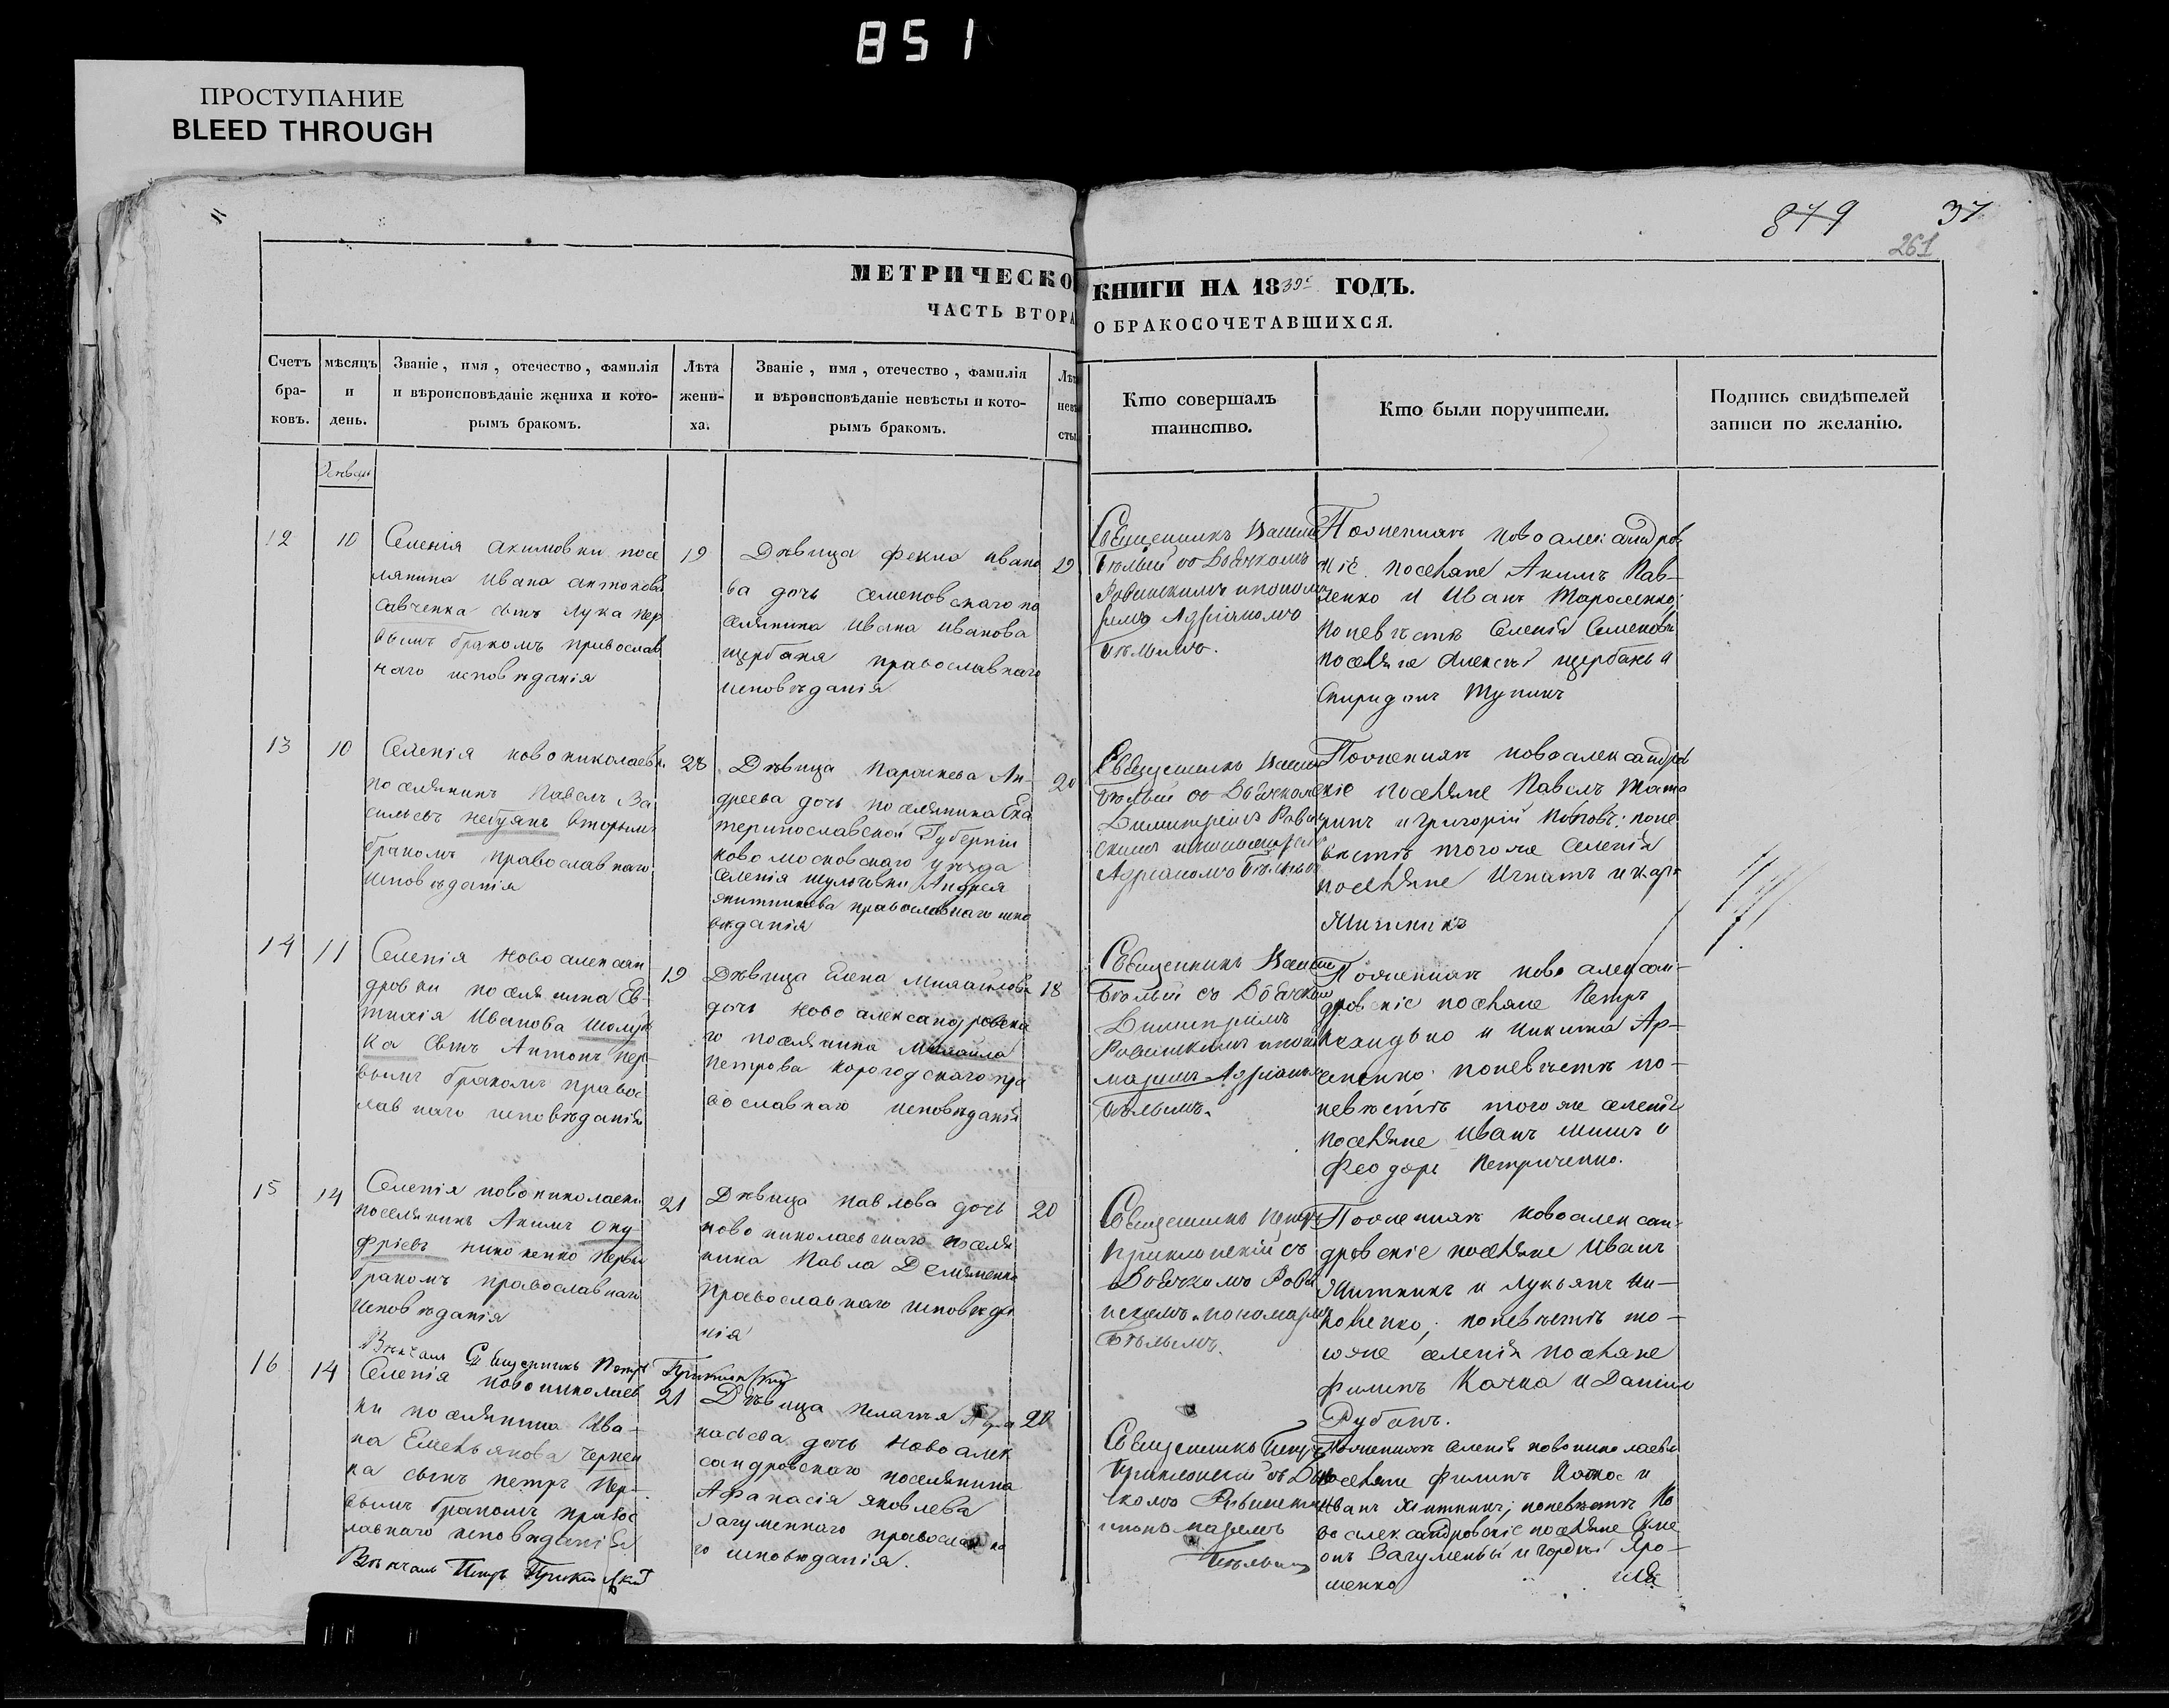 851
ПРОСТУПАНИЕ
BLEED THROUGH
849 37
261
МЕТРИЧЕСКО КНИГИ НА 1839 ГОДЪ.
ЧАСТЬ ВТОРА О БРАКОСОЧЕТАВШИХСЯ.
Счетъ
бра-
ковъ.
мѣсяцъ
и
день.
Званіе, имя, отечество, фамилія
и вѣроисповѣданіе жениха и кото-
рымъ бракомъ.
Лѣта
жени-
ха.
Званіе, имя, отечество, фамилія
и вѣроисповѣданіе невѣсты и кото-
рымъ бракомъ.
Лѣт
невѣ
сты
Кто совершалъ
таинство.
Кто были поручители.
Подпись свидѣтелей
записи по желанію.
12
10
Селенія Акимовки посе
лянина Ивана Антонова
Савченка сынъ Лука пер
вымъ бракомъ православ
наго исповѣданія
19
Дѣвица Фекла Ивано
ва дочь Семеновскаго по
селянина Ивана Иванова
Щербаня православнаго
исповѣданія
19
Священникъ
Бѣлый со Дьячкомъ
Ровинскимъ и понома
ремъ Адріаномъ
Бѣлымъ.
По женихѣ новоалександров
скіе поселяне Акимъ Пав-
ленко и Иванъ Тарасенко;
по невѣстѣ Селенія Семеновки
поселяне Алексѣй Щербань и
Спиридонъ Тупикъ
13
10
Селенія новониколаевк.
поселянинъ Павелъ Ва
сильевъ вторымъ
бракомъ православнаго
исповѣданія
28
Дѣвица Параскева Ан-
дреева дочь поселянина Ека
теринославской Губерніи
новомосковскаго уѣзда
селенія Шульговки Андрея
православнаго испо
вѣданія
20
Священникъ
Бѣлый со Дьячкомъ
Димитріемъ Рови
скимъ и пономаремъ
Адріаномъ Бѣлымъ
По женихѣ новоалександров
скіе поселяне Павелъ
и Григорій Поповъ; по не
вѣстѣ того же селенія
поселяне Игнатъ и
Житникъ
14
11
Селенія новоалексан
дровки поселянина Ев-
тихія Иванова
ка сынъ Антонъ пер
вымъ бракомъ правос
лавнаго исповѣданія
19
Дѣвица Елена Михайлова
дочь новоалександровска
го поселянина Михайла
Петрова Корогодскаго пра
вославнаго исповѣданія
18
Священникъ
Бѣлый съ Дьячкомъ
Димитріемъ
Ровинскимъ и поно
маремъ Адріаномъ
Бѣлымъ.
По женихѣ новоалексан-
дровскіе поселяне Петръ
и Никита Ар-
сененко; по невѣстѣ по-
невѣстѣ того же селенія
поселяне Иванъ и
Феодоръ Петриченко.
15
14
Селенія новониколаевки
поселянинъ Акимъ Ону-
фріевъ Никоненко первы
бракомъ православнаго
исповѣданія
21
Дѣвица Павлова дочь
новониколаевскаго поселя
нина Павла
православнаго исповѣда
нія
20
Священникъ Петръ
Приклонскій съ
Дьячкомъ Рови
нскимъ и пономаремъ
Бѣлымъ.
По женихѣ новоалексан-
дровскіе поселяне Иванъ
Житникъ и Лукьянъ Ни-
коненко; по невѣстѣ то-
гоже селенія поселяне
Филипъ Качка и Данило
Рубанъ.
Вѣнчалъ Священникъ Петръ Приклонскій
16
14
Селенія новониколаев
ки поселянина Ива-
на Емельянова Чернен
ка сынъ Петръ пер-
вымъ бракомъ правос
лавнаго исповѣданія
21
Дѣвица Пелагѣя Афа
насьева дочь новоалек
сандровскаго поселянина
Афанасія Яковлева
Загуменнаго православна
го исповѣданія.
20
Священникъ Петръ
Приклонскій съ Дья
чкомъ Ровинскимъ
и пономаремъ
Бѣлымъ
По женихѣ селенія новониколаевки
поселяне Филипъ и
Иванъ Житникъ; по невѣстѣ но
воалександровскіе поселяне Симе
онъ Загуменный и Гордѣй Яро-
шенко
Вѣнчалъ Петръ Приклонскій